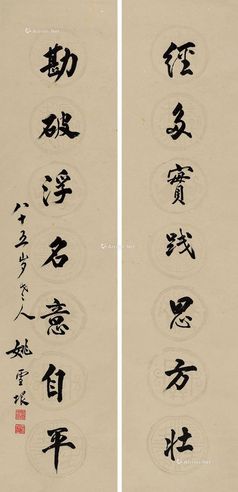 經多實践思方壮
勘破浮名意自平
八十五岁老人 姚雪垠